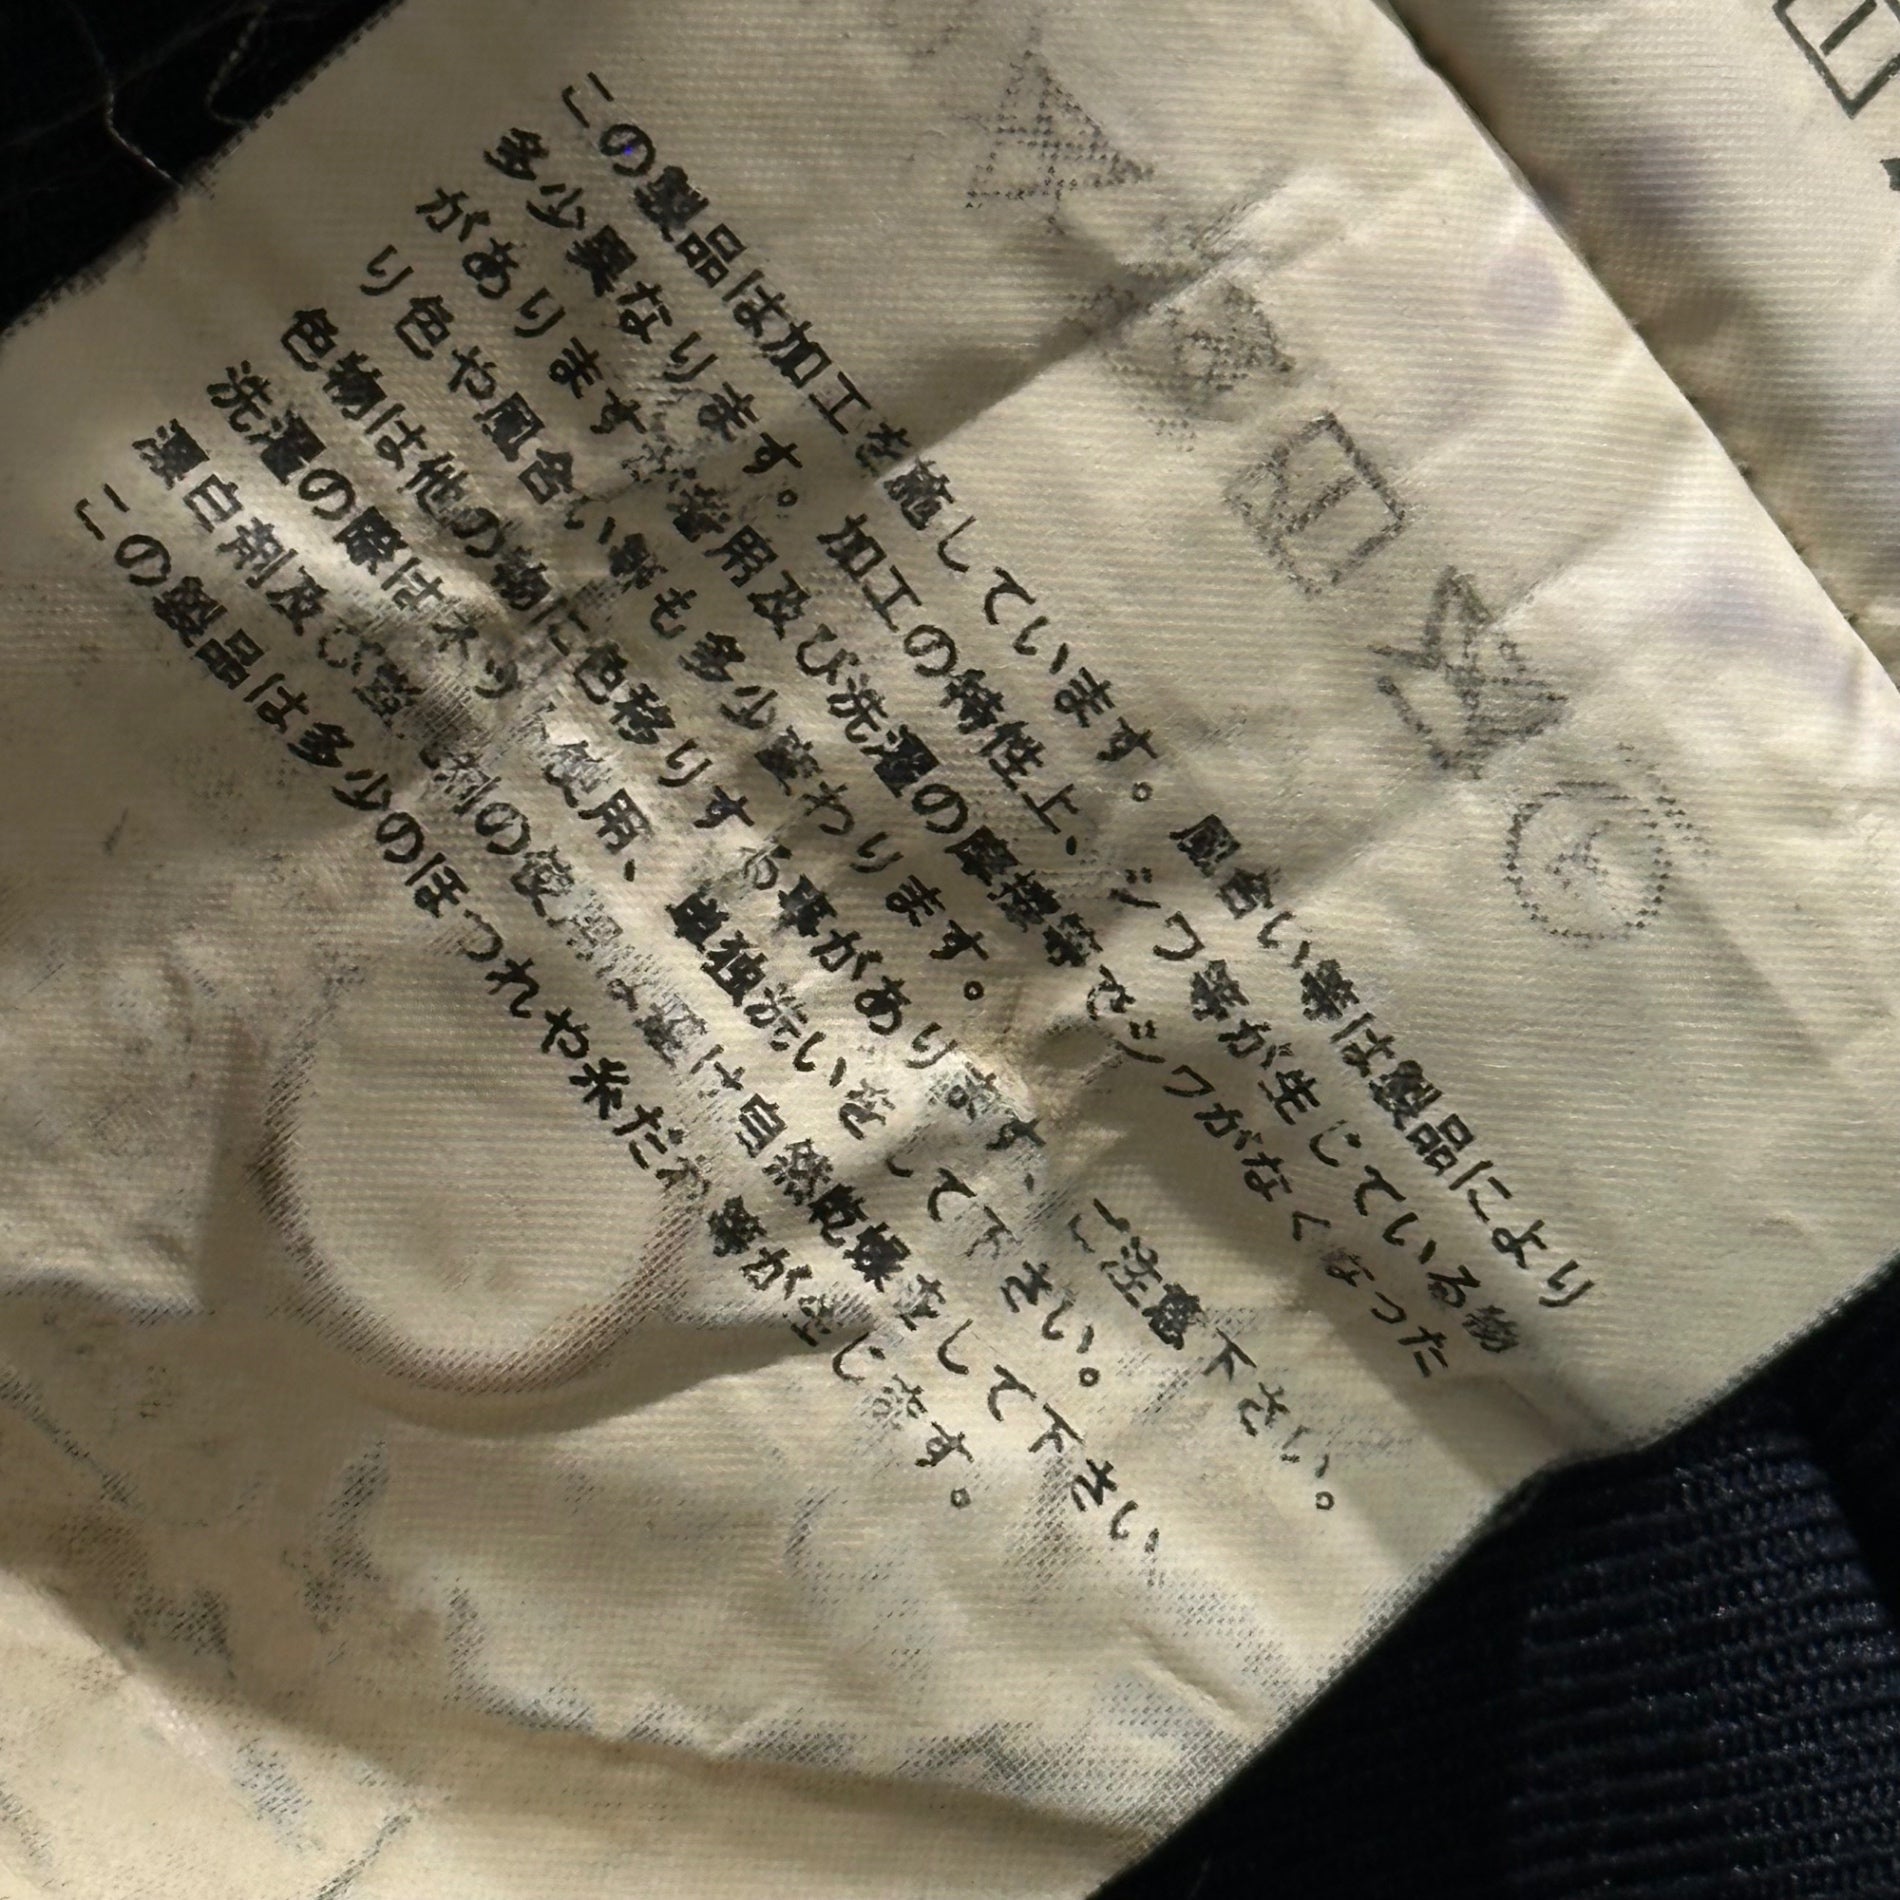 この製品は加工を施しています。風合い等は製品により
多少異なります。加工の特性上、シワ等が生じている物
がありますが着用及び洗濯の摩擦等でシワがなくなった
り色や風合い等も多少変わります。
色物は他の物に色移りする事があります、ご注意下さい。
洗濯の際はネット使用、単独洗いをして下さい。
漂白剤及び蛍光剤の使用は避け自然乾燥をして下さい
この製品は多少のほつれや糸だれ等が生じます。